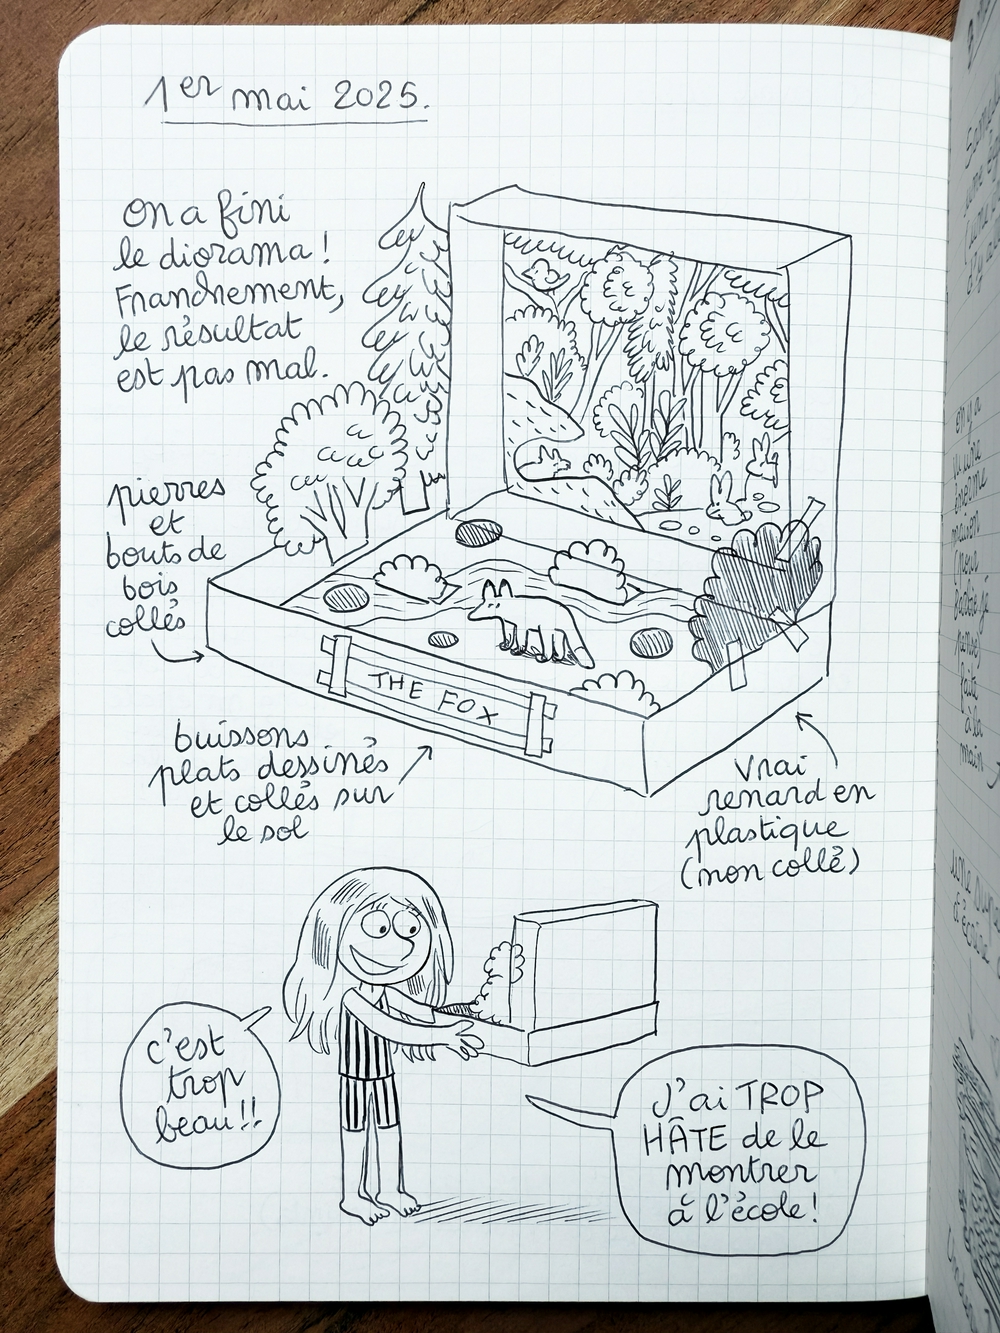 1er mai 2025.
On a fini
le diorama !
Franchement,
le résultat
est pas mal.
pierres
et
bouts de
bois
collés
THE FOX
buissons
plats dessinés
et collés sur
le sol
Vrai
renard en
plastique
(non collé)
c'est
trop
beau !!
J'ai TROP
HÂTE de le
montrer
à l'école !
on y a
vu une
énorme
maison
(pour
faite
à la
main